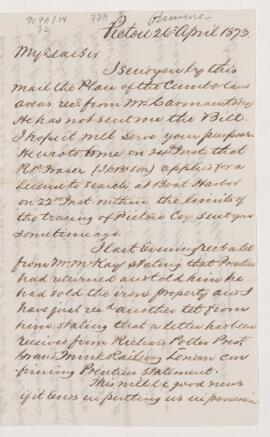 Pictou 26 April 1873
My Dear Sir
I send you by this
mail the Plan of the Cumberland
areas recd from Mr
He has not sent me the Bill.
I hope it will serve your purpose
He wrote to me on 24 Inst that
R P Fraser applied for a
License to search at Boat Harbor
on 22nd Inst within the limits of
the tracing of Pictou Coy sent you
sometime ago.
I last Evening recd a tel
from Mr McKay stating that Prentice
had returned and told him he
had sold the iron property and I
have just recd another tel from
him stating that a letter had been
received from Richard Potter Prest
Grand Trunk Railway London con
firming Prentices statement.
This will be good news
if it ends in putting us in possession